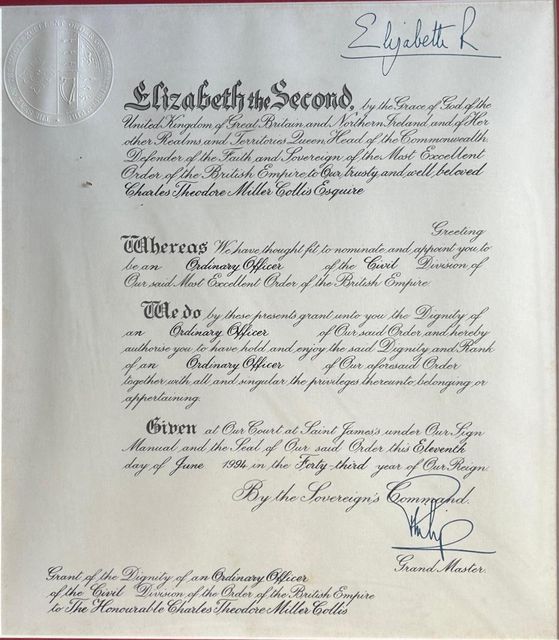 Elizabeth R
Elizabeth the Second, by the Grace of God of the
United Kingdom of Great Britain and Northern Ireland and of Her
other Realms and Territories Queen Head of the Commonwealth
Defender of the Faith and Sovereign of the Most Excellent
Order of the British Empire to Our trusty and well beloved
Charles Theodore Miller Collis Esquire
Greeting
Whereas We have thought fit to nominate and appoint you to
be an Ordinary Officer of the Civil Division of
Our said Most Excellent Order of the British Empire
We do by these presents grant unto you the Dignity of
an Ordinary Officer of Our said Order and hereby
authorise you to have hold and enjoy the said Dignity and Rank
of an Ordinary Officer of Our aforesaid Order
together with all and singular the privileges thereunto belonging or
appertaining.
Given at Our Court at Saint James's under Our Sign
Manual and the Seal of Our said Order this Eleventh
day of June 1994 in the Forty-third year of Our Reign.
By the Sovereign's Command.
Philip
Grand Master.
Grant of the Dignity of an Ordinary Officer
of the Civil Division of the Order of the British Empire
to The Honourable Charles Theodore Miller Collis